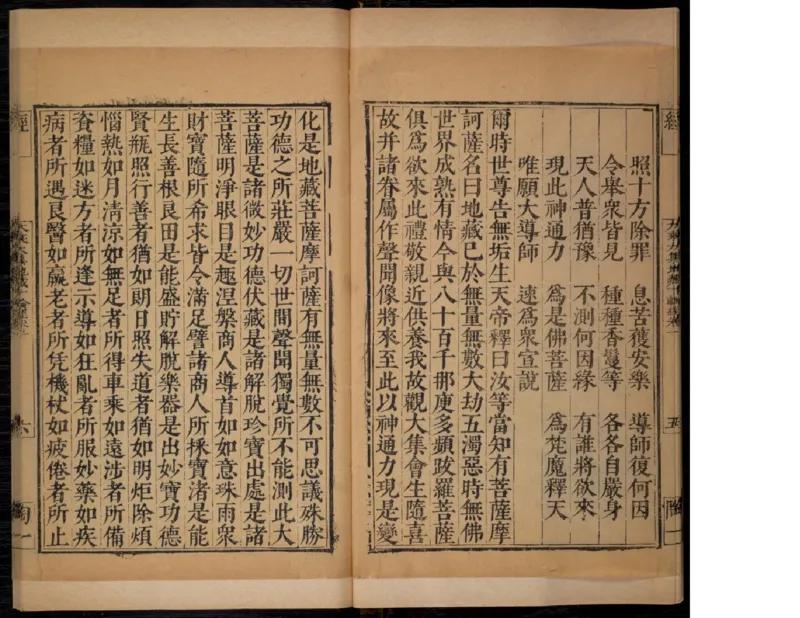 經
五
照十方除罪　息苦獲安樂　導師復何因
令舉衆皆見　種種香鬘等　各各自嚴身
天人普猶豫　不測何因緣　有誰將欲來
現此神通力　爲是佛菩薩　爲梵魔釋天
唯願大導師　速爲衆宣說
爾時世尊告無垢生天帝釋曰汝等當知有菩薩摩
訶薩名曰地藏已於無量無數大劫五濁惡時無佛
世界成熟有情今與八十百千那庾多頻跋羅菩薩
俱爲欲來此禮敬親近供養我故觀大集會生隨喜
故并諸眷屬作聲聞像將來至此以神通力現是變
化是地藏菩薩摩訶薩有無量無數不可思議殊勝
功德之所莊嚴一切世間聲聞獨覺所不能測此大
菩薩是諸微妙功德伏藏是諸解脫珍寶出處是諸
菩薩明淨眼目是趣涅槃商人導首如如意珠雨衆
財寶隨所希求皆令滿足譬諸商人所採寶渚是能
生長善根良田是能盛貯解脫樂器是出妙寶功德
賢瓶照行善者猶如朗日照失道者猶如明炬除煩
惱熱如月清涼如無足者所得車乘如遠涉者所備
資糧如迷方者所逢示導如狂亂者所服妙藥如疾
病者所遇良醫如羸老者所凭機杖如疲倦者所止
經
六